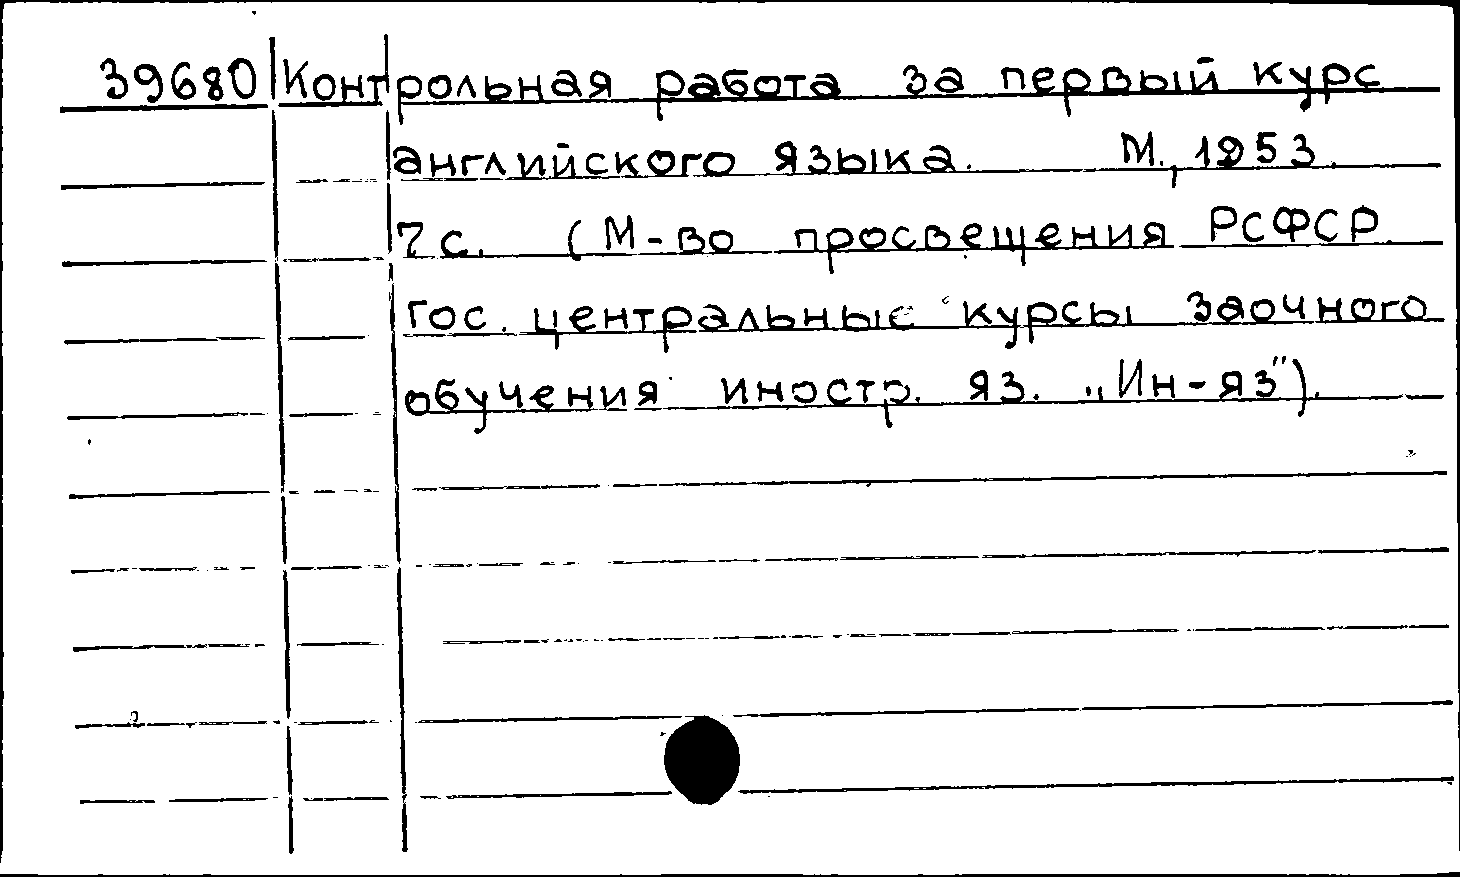 39680 Контрольная работа за первый курс
английского языка. М., 1953.
7 с. (М-во просвещения РСФСР.
Гос. центральные курсы заочного
обучения иностр. яз. „Ин-яз").